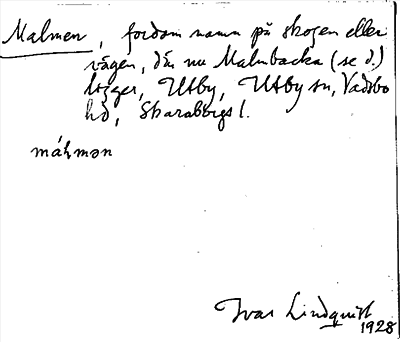 Malmen, fordom namn på skogen eller
vägen, där nu Malmbacka (se d.)
ligger, Utby, Utby sn, Vadsbo
hd, Skarabbigs l.
máḥmən
Ivar Lindquist
1928